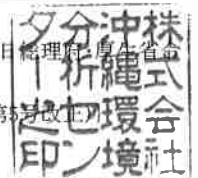 株式会社
沖縄環境
分析セン
ター之印
総理府・厚生省
第5号改正)